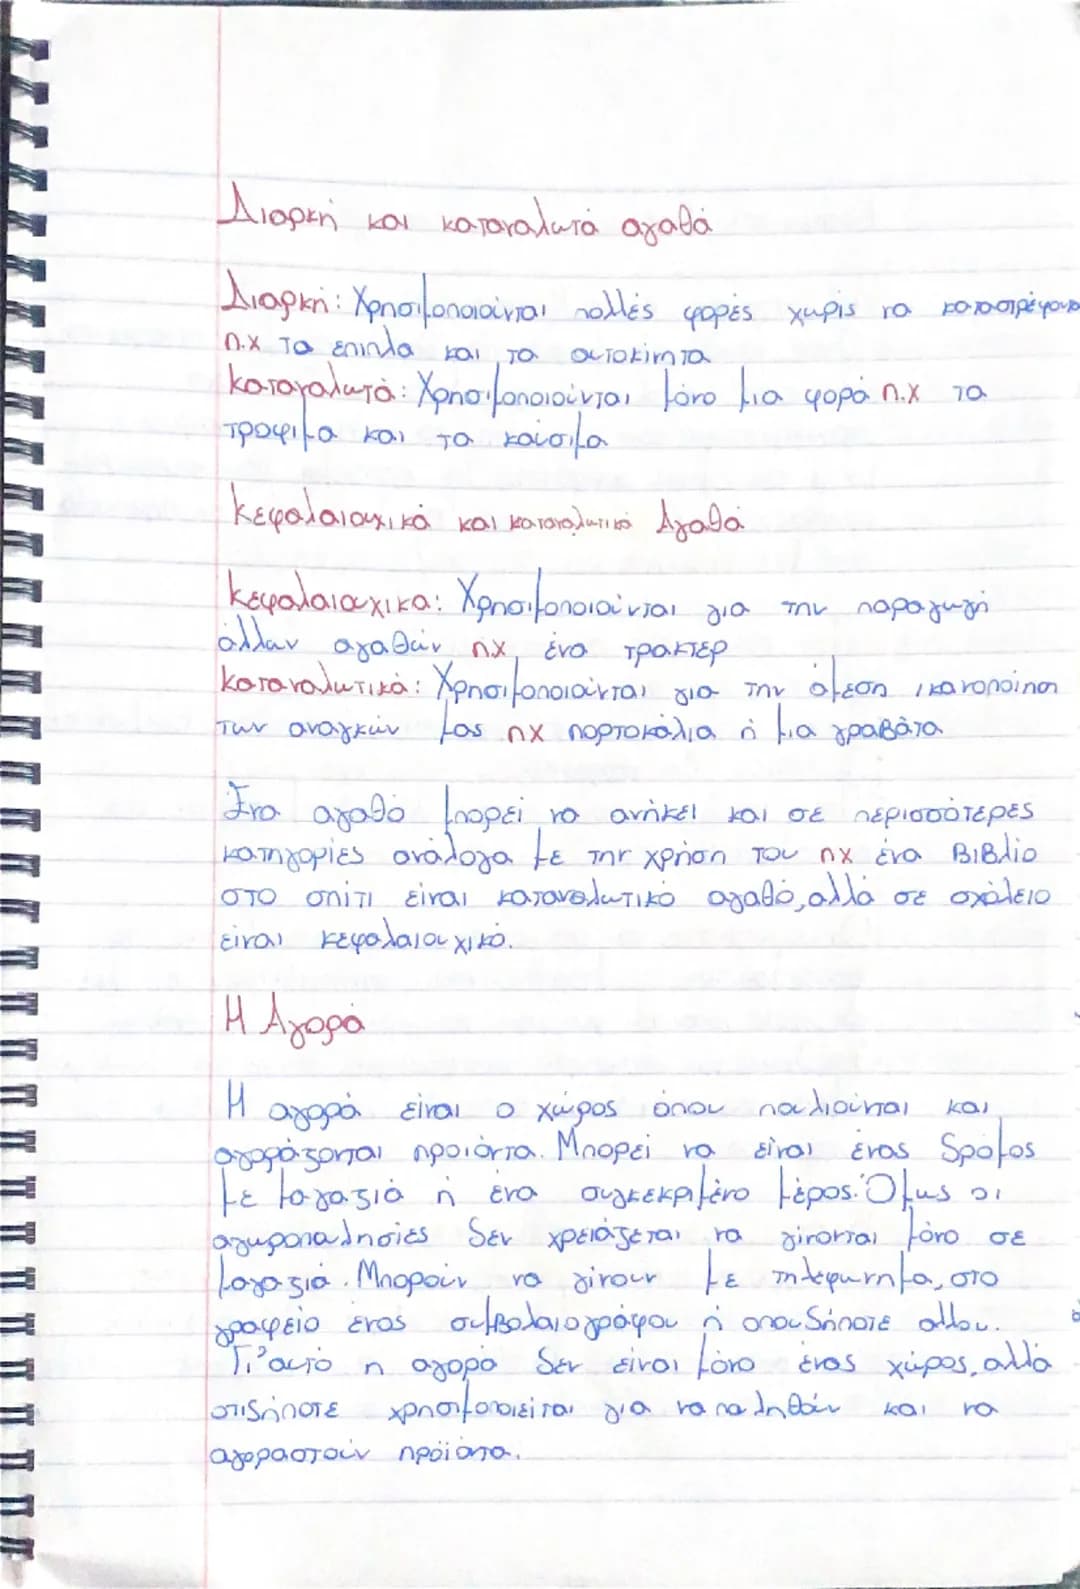 Διαρκή και καταναλωτά αγαθά
Διαρκή: Χρησιμοποιούνται πολλές φορές χωρίς να καταστρέφονται
π.χ τα έπιπλα και τα αυτοκίνητα
Καταναλωτά: Χρησιμοποιούνται μόνο μια φορά π.χ τα
τρόφιμα και τα καύσιμα
Κεφαλαιουχικά και καταναλωτικά Αγαθά
Κεφαλαιουχικα: Χρησιμοποιούνται για την παραγωγή
άλλων αγαθών πχ ένα τρακτέρ
Καταναλωτικά: Χρησιμοποιούνται για την άμεση ικανοποίηση
των αναγκών μας πχ πορτοκάλια ή μια γραβάτα
Ένα αγαθό μπορεί να ανήκει και σε περισσότερες
κατηγορίες ανάλογα με την χρήση του πχ ένα Βιβλίο
στο σπίτι είναι καταναλωτικό αγαθό, αλλά σε σχολείο
είναι κεφαλαιουχικό.
Η Αγορά
Η αγορά είναι ο χώρος όπου πουλιούνται και
αγοράζονται προιόντα. Μπορεί να είναι ένας δρόμος
με μαγαζιά ή ένα συγκεκριμένο μέρος. Όμως οι
αγωροπωλησίες δεν χρειάζεται να γίνονται μόνο σε
μαγαζιά. Μπορούν να γίνουν με τηλεφωνημα, στο
γραφείο ενός συμβολαιογράφου ή οπουδήποτε αλλου.
Γι'αυτό η αγορά δεν είναι μόνο ένας χώρος, αλλά
οτιδήποτε χρησιμοποιείται για να πωληθούν και να
αγοραστούν προϊόντα.